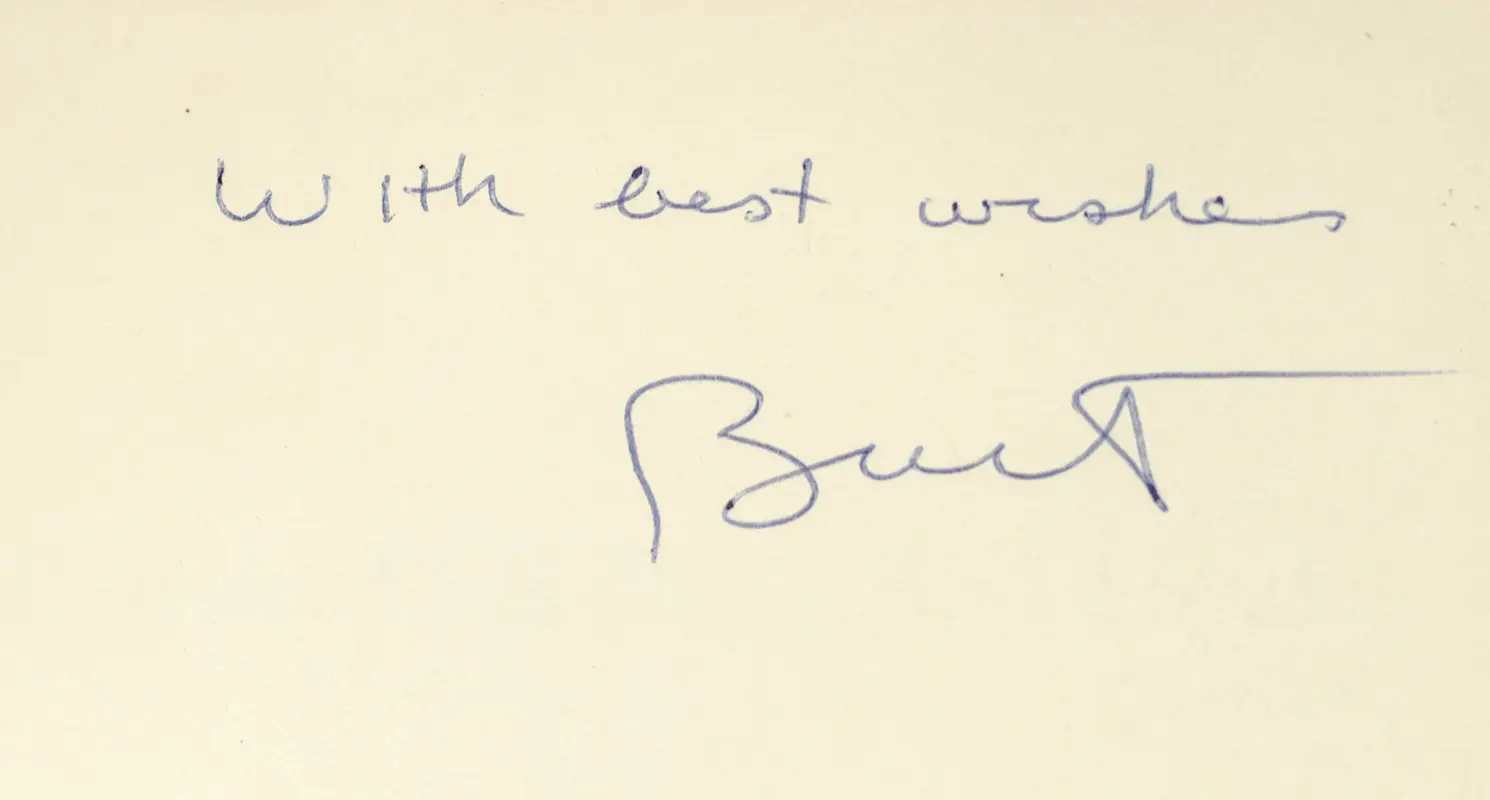 With best wishes
Burt